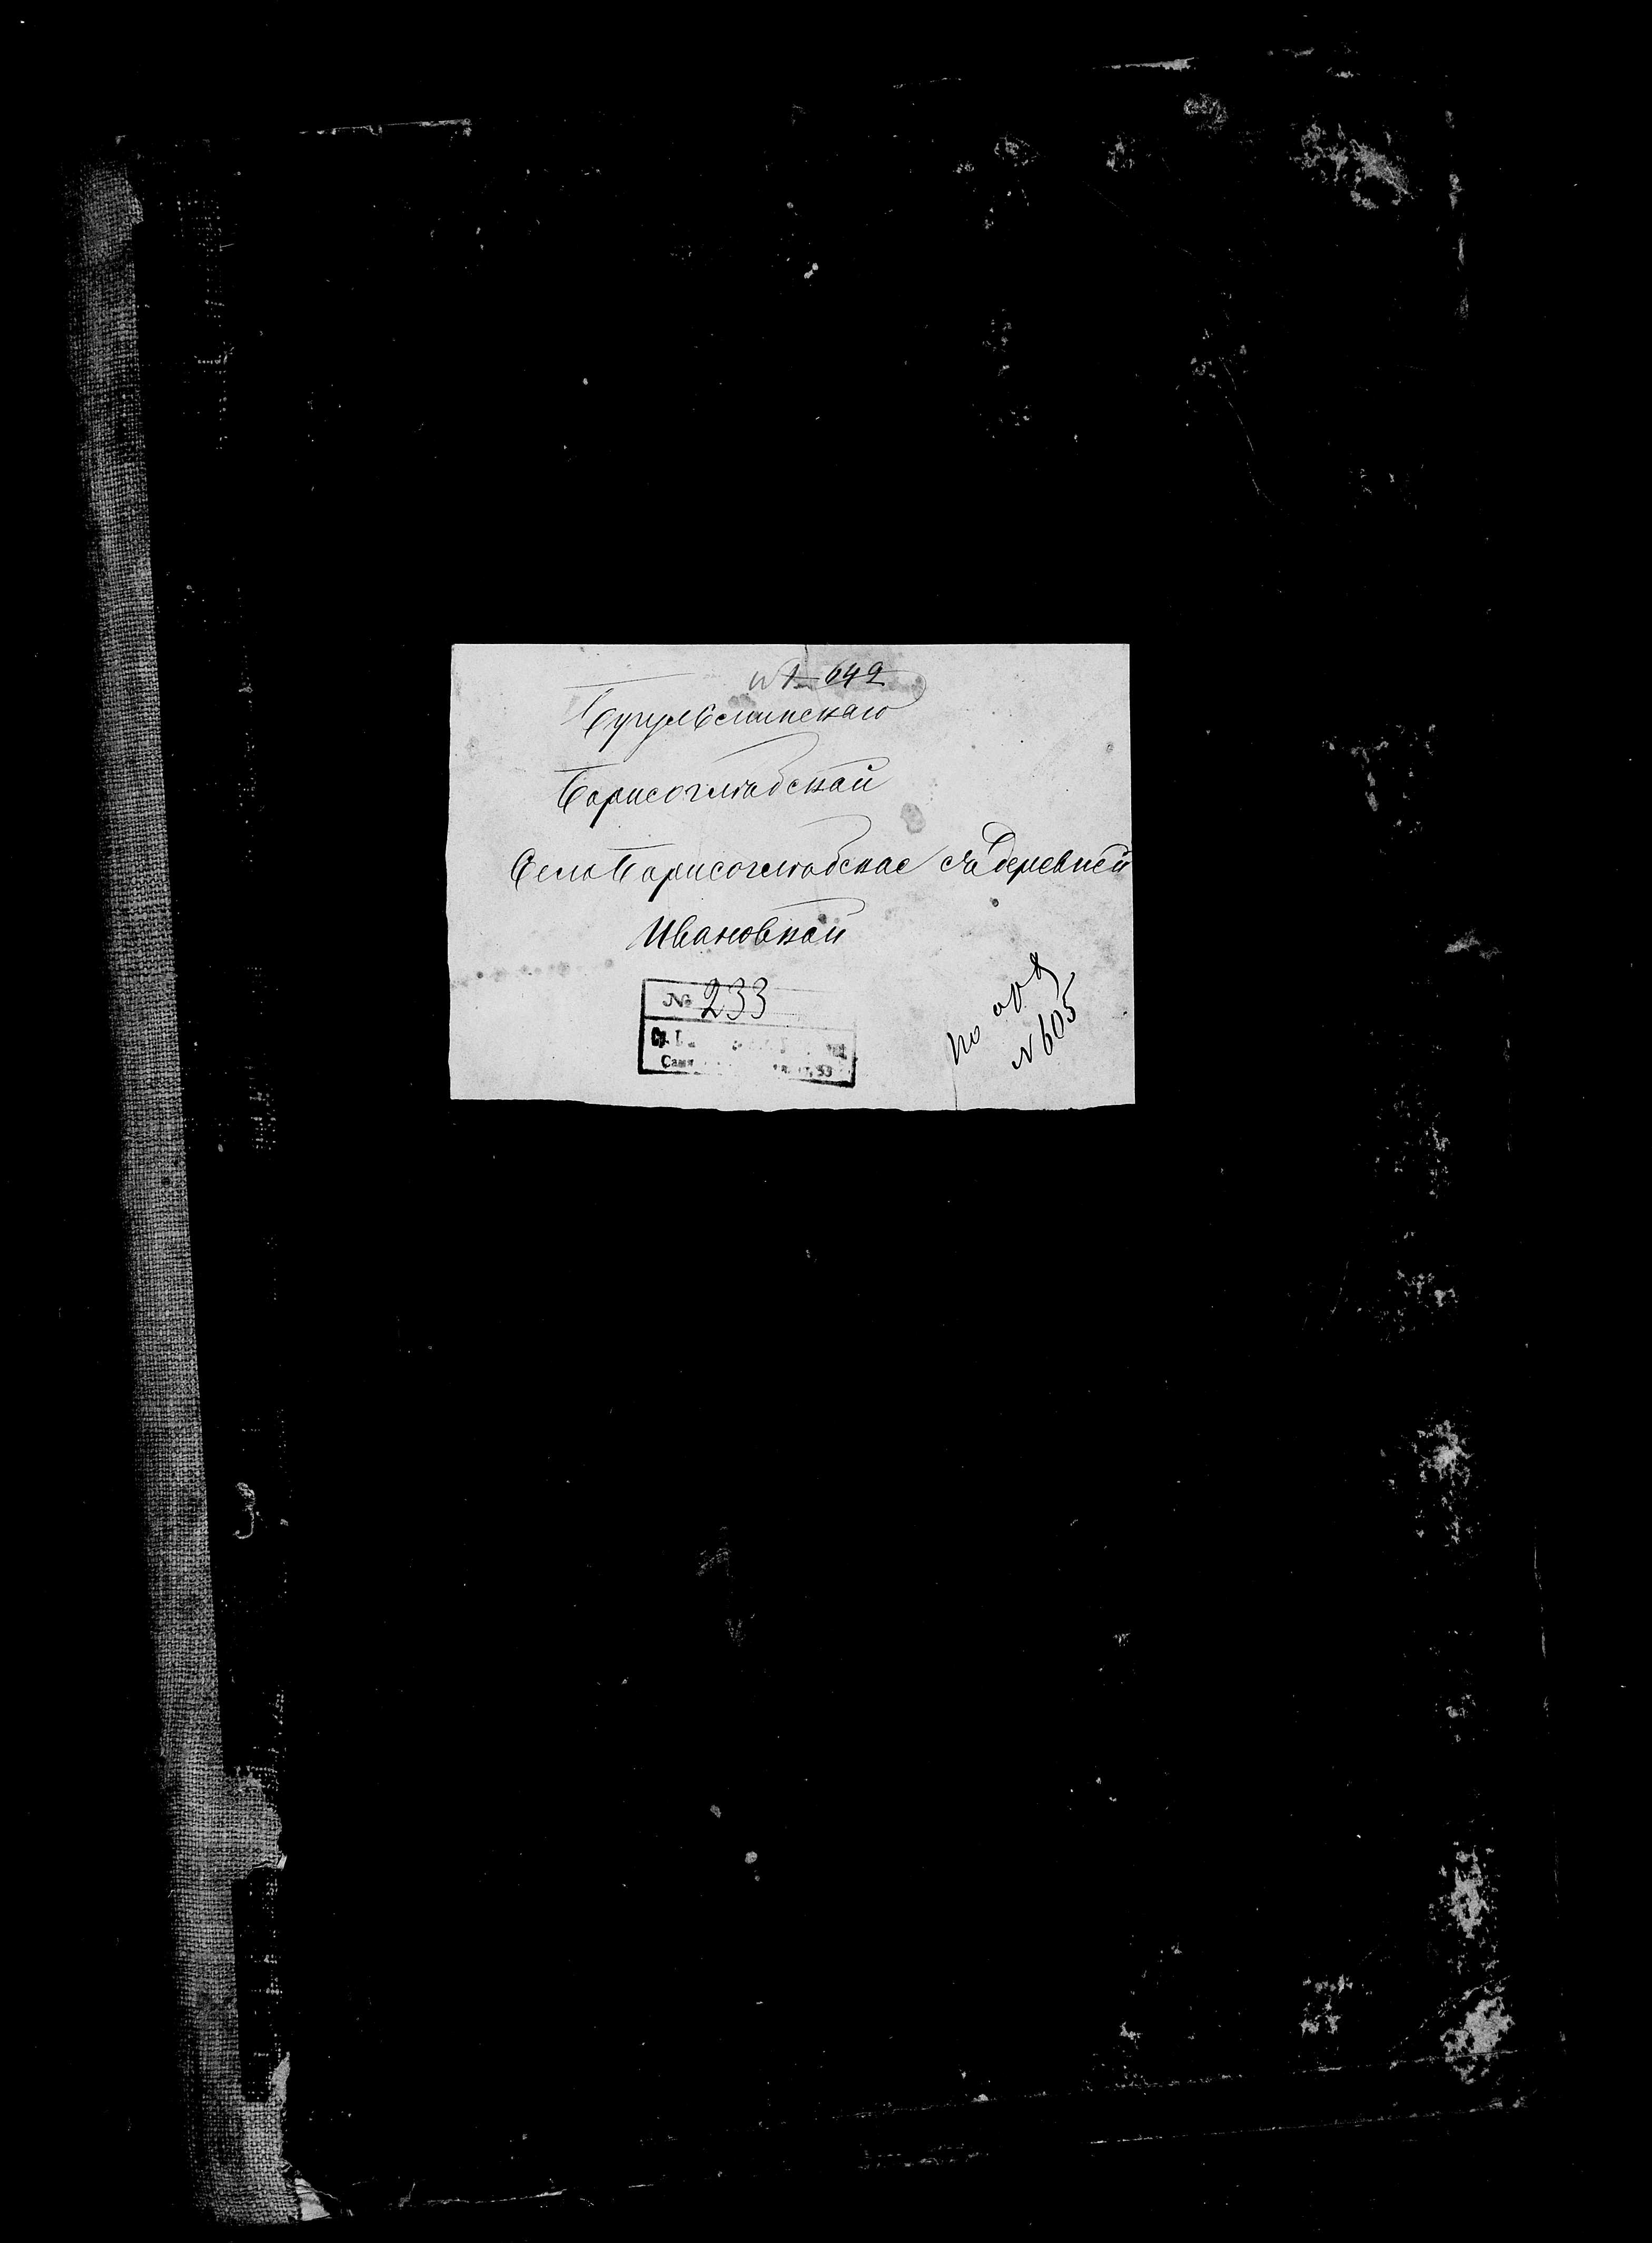 № 642
Бугульминскаго
Борисоглѣбской
Село Борисоглѣбское съ деревней
Ивановкой
№ 233
по оп 8
№ 605